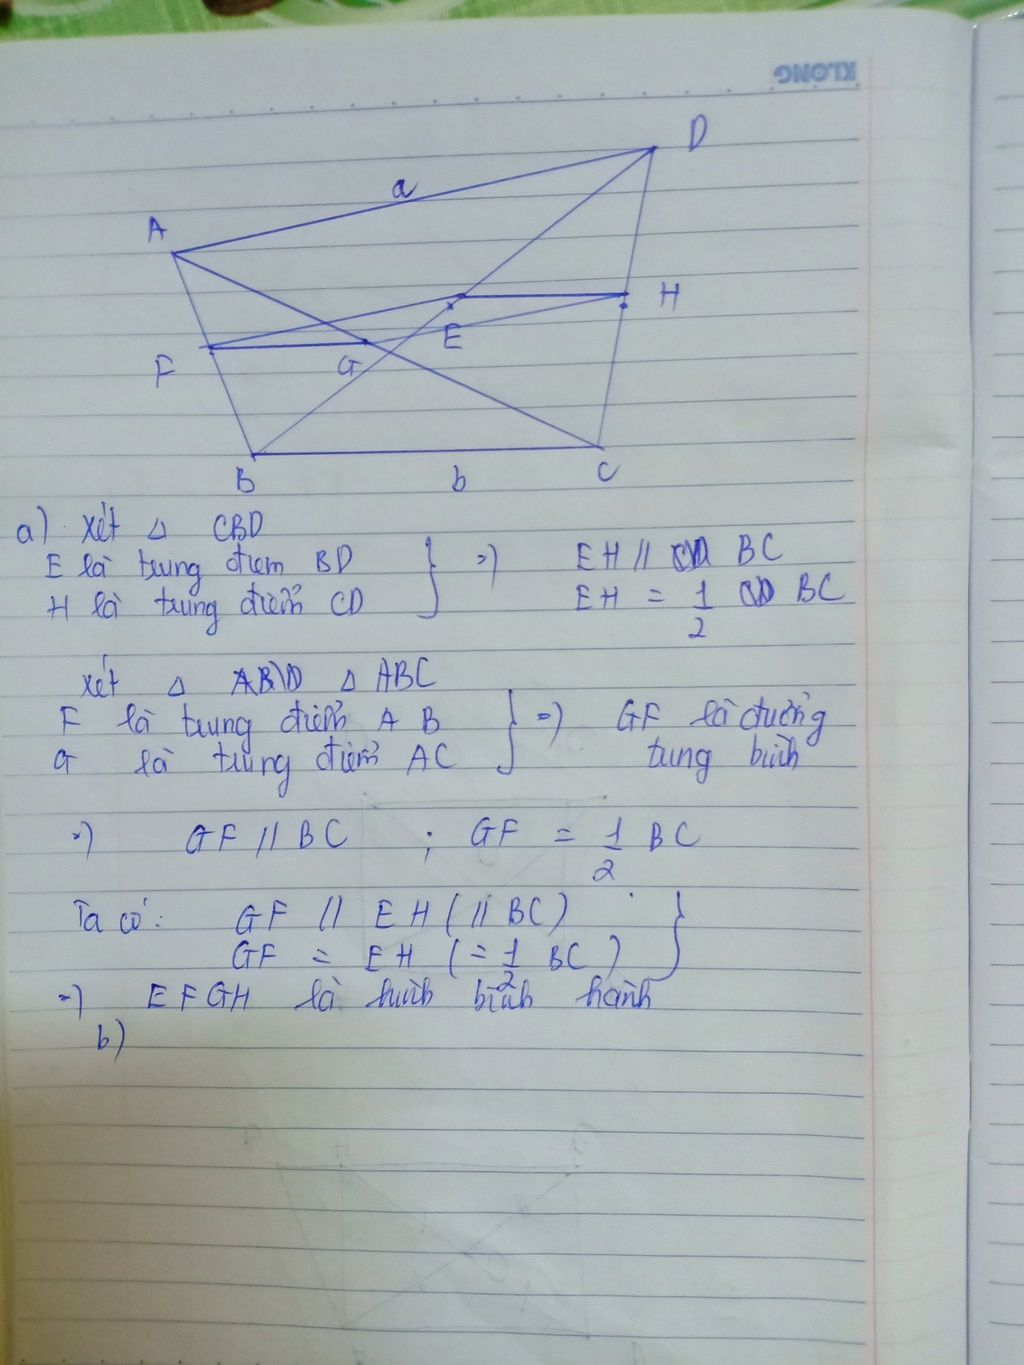 KLONG
D
a
A
H
E
F
G
B
b
C
a) xét Δ CBD
E là trung điểm BD } => EH // BC
H là trung điểm CD EH = 1/2 BC
xét Δ Δ ABC
F là trung điểm AB } => GF là đường
G là trung điểm AC tung bình
=> GF // BC ; GF = 1/2 BC
Ta có: GF // EH ( // BC) }
GF = EH ( = 1/2 BC)
=> EFGH là hình bình hành
b)